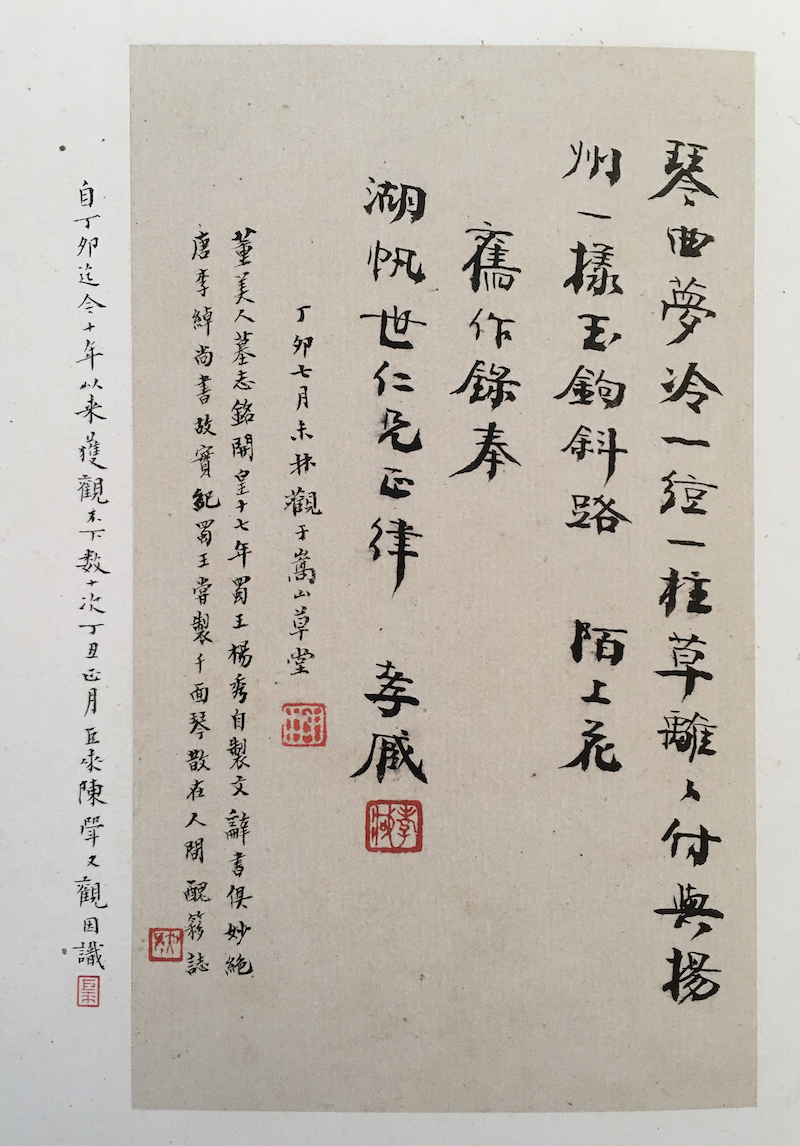 琴曲夢冷一絃一柱草離々付與揚
州一樣玉鉤斜路　陌上花
舊作錄奉
湖帆世仁兄正律　孝臧
孝臧
丁卯七月未林觀于嵩山草堂
董美人墓志銘開皇十七年蜀王楊秀自製文辭書俱妙絕
唐李綽尚書故實紀蜀王嘗製千面琴散在人間　醜簃誌
自丁卯迄今十年以來獲觀不下数十次丁丑正月巨來陳𡔷又觀因識
巨來